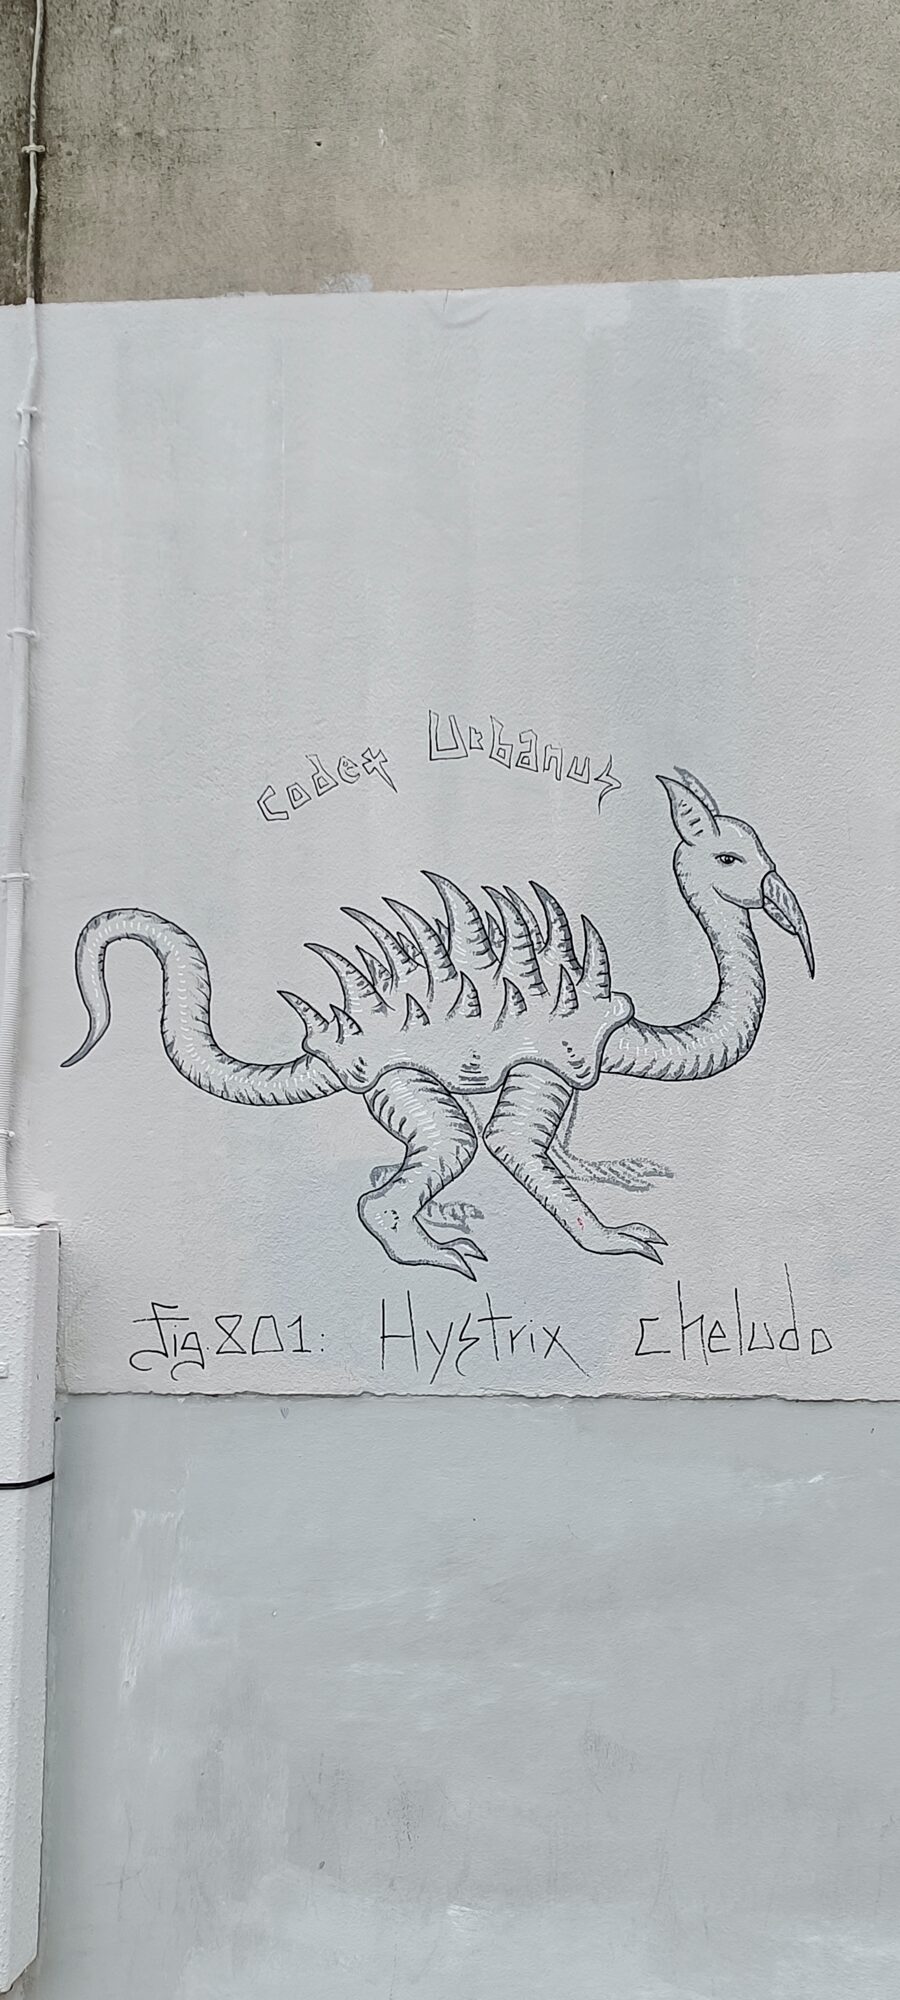 Codex Urbanus
Fig.801: Hystrix cheludo